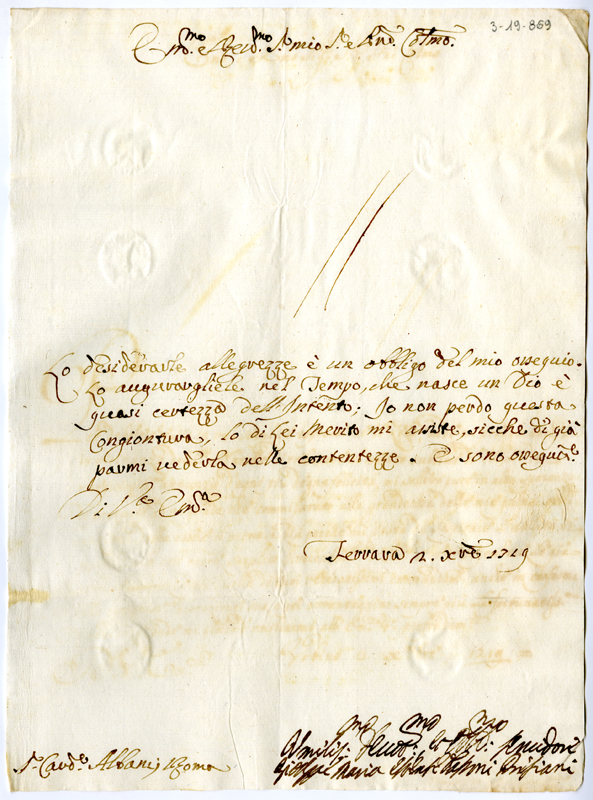 3-19-869
Em.mo e Rev.mo S.r mio S.r e P.rone Col.mo
Lo desiderarle allegrezze è un obbligo del mio ossequio.
Lo augurargliele nel Tempo, che nasce un Dio è
quasi certezza dell'Intento; Io non perdo questa
Congiontura, lo di Lei Merito mi assiste, sicche di già
parmi vederla nelle contentezze. E sono ossequios.e
Di V.ra Em.a
Ferrara 2. Xbre 1719
Umilis.mo Devot.mo et Obbl.mo Servidore
Giuseppe Maria
S.r Card.e Albani Roma